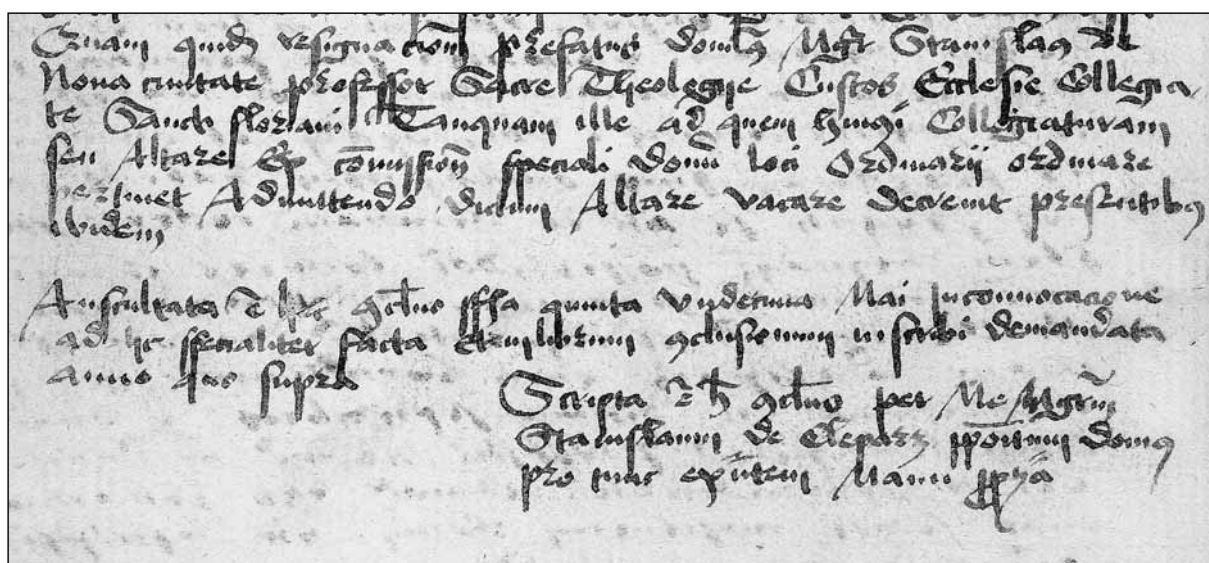 Quam quid resignacion prefatus domus Mgr Stanislaus de
Nova civitate professor Sacre Theologie Custos Ecclesie Collegia
te Sancti floriani Tanquam ille ad quem hmoi Collegiaturam
seu Altare Ex comission speciali domi loci Ordinarii ordinare
pertinet Admittendo dictum Altare vacare decrevit presentibus
ibidem
Auscultata e hec conclusio ffia quinta Undecima Mai In convocacione
ad hc specialiter facta et in librum conclusionum inscribi demandata
anno quo supra
Scripta e h conclusio per Me Mgrm
Stanislaum de Cleparz ppositum domus
pro tunc exntem Manu ppria